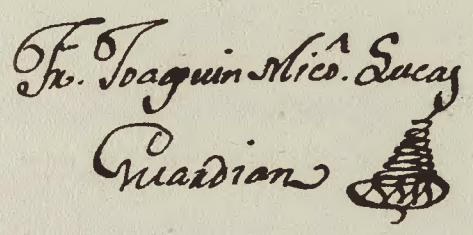 Fr. Joaquin Micô. Lucas
Guardian